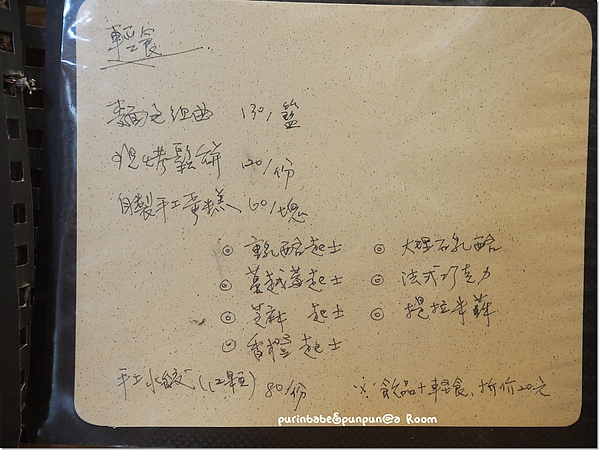 輕食
麵包組曲 130/籃
現烤鬆餅 120/份
自製手工蛋糕 60/塊
◎ 重乳酪起士 ◎ 大理石乳酪
◎ 蔓越莓起士 ◎ 法式巧克力
◎ 芝麻 起士 ◎ 提拉米蘇
◎ 香橙起士
手工水餃(12顆) 80/份 ※飲品+輕食,折价20元
purinbabe&punpun@a Room